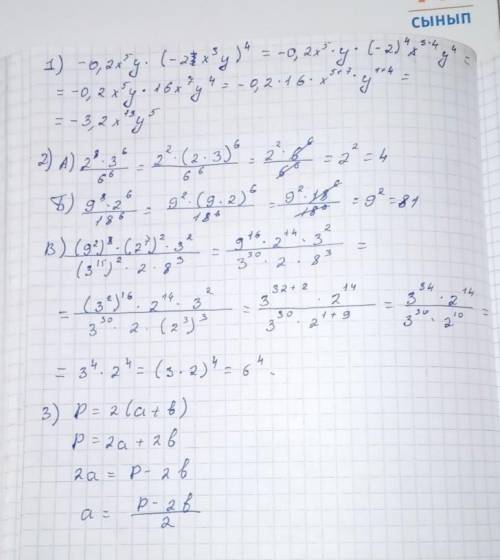 СЫНЫП
1) -0,2x⁵y · (-2x³y)⁴ = -0,2x⁵·y·(-2)⁴x³·⁴y⁴ =
= -0,2x⁵y · 16x⁷y⁴ = -0,2·16·x⁵⁺⁷·y¹⁺⁴ =
= -3,2x¹³y⁵
2) А) 2⁸·3⁶/6⁶ = 2²·(2·3)⁶/6⁶ = 2²·6⁶/6⁶ = 2² = 4
Б) 9⁸·2⁶/18⁶ = 9²·(9·2)⁶/18⁶ = 9²·18⁶/18⁶ = 9² = 81
В) (9²)⁸·(2⁷)²·3²/(3¹⁵)²·2·8³ = 9¹⁶·2¹⁴·3²/3³⁰·2·8³ =
= (3²)¹⁶·2¹⁴·3²/3³⁰·2·(2³)³ = 3³²⁺²·2¹⁴/3³⁰·2¹⁺⁹ = 3³⁴·2¹⁴/3³⁰·2¹⁰ =
= 3⁴·2⁴ = (3·2)⁴ = 6⁴.
3) P = 2(a+b)
P = 2a + 2b
2a = P - 2b
a = P - 2b/2